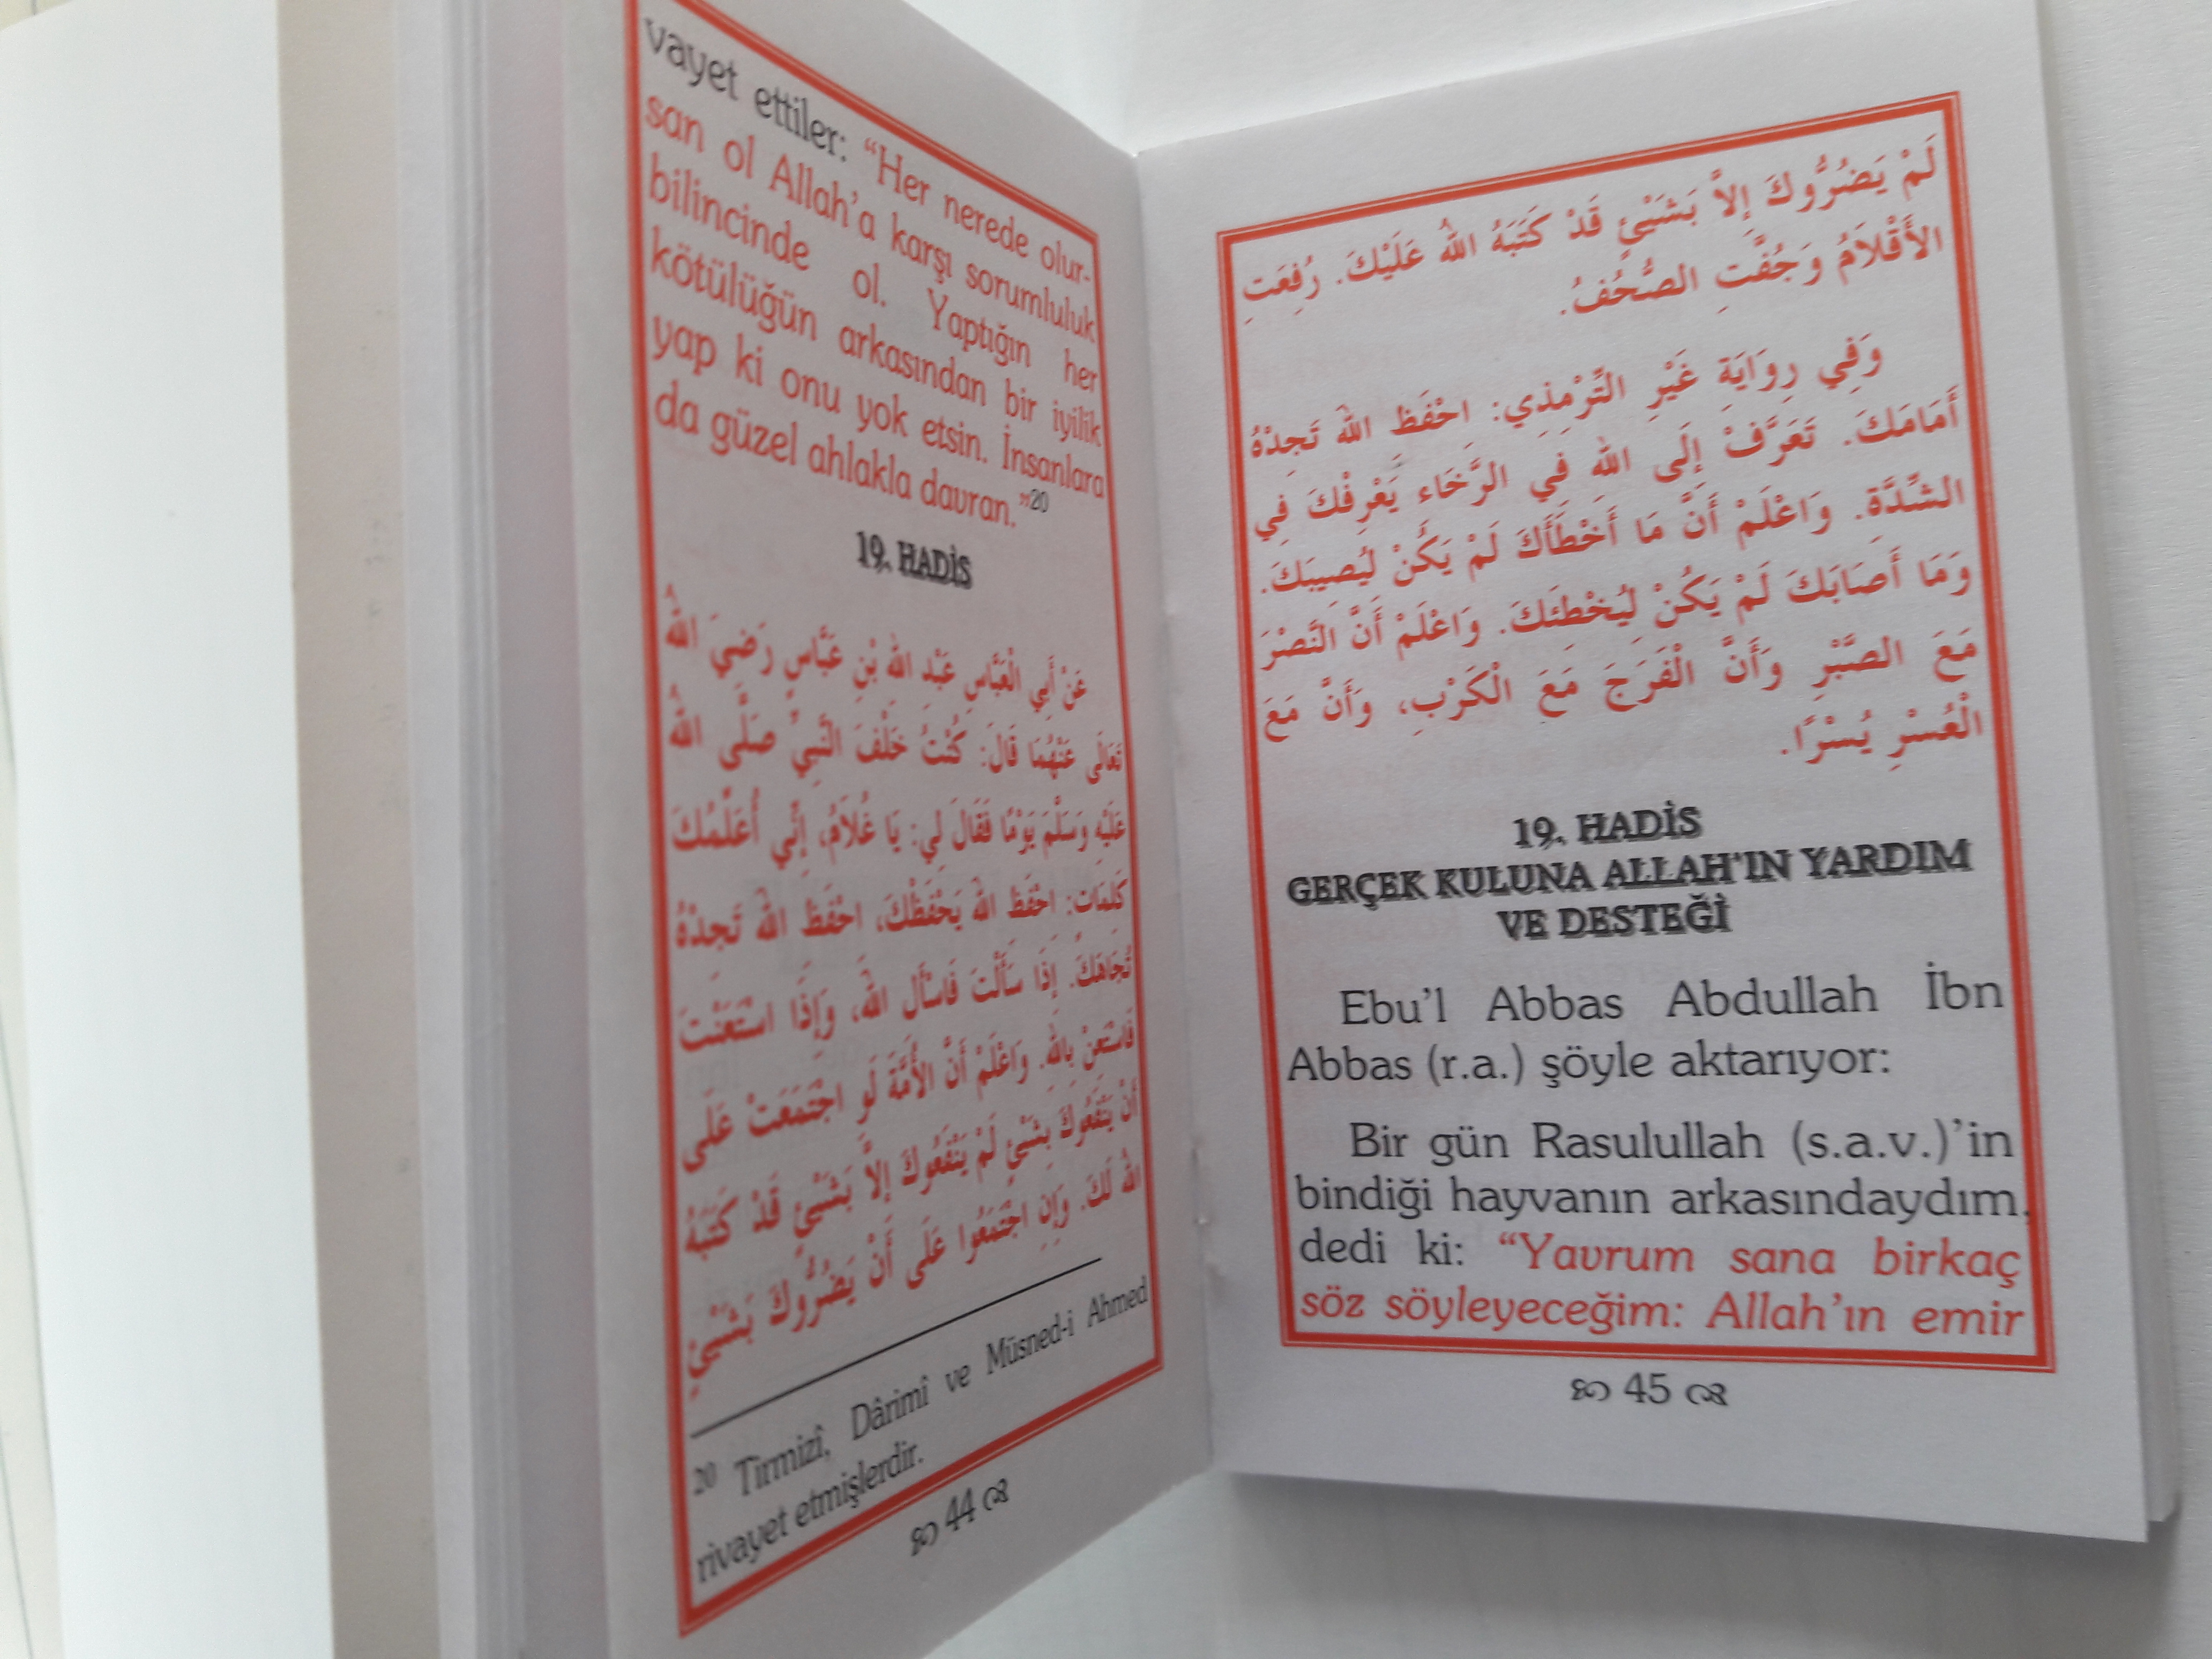 vayet ettiler: “Her nerede olur-
san ol Allah’a karşı sorumluluk
bilincinde ol. Yaptığın her
kötülüğün arkasından bir iyilik
yap ki onu yok etsin. İnsanlara
da güzel ahlakla davran.”20
19. HADİS
عَنْ أَبِي الْعَبَّاسِ عَبْدِ اللهِ بْنِ عَبَّاسٍ رَضِيَ اللهُ
تَعَالَى عَنْهُمَا قَالَ: كُنْتُ خَلْفَ النَّبِيِّ صَلَّى اللهُ
عَلَيْهِ وَسَلَّمَ يَوْمًا فَقَالَ لِي: يَا غُلاَمُ، إِنِّي أُعَلِّمُكَ
كَلِمَاتٍ: احْفَظِ اللهَ يَحْفَظْكَ، احْفَظِ اللهَ تَجِدْهُ
تُجَاهَكَ. إِذَا سَأَلْتَ فَاسْأَلِ اللهَ، وَإِذَا اسْتَعَنْتَ
فَاسْتَعِنْ بِاللهِ. وَاعْلَمْ أَنَّ الأُمَّةَ لَوِ اجْتَمَعَتْ عَلَى
أَنْ يَنْفَعُوكَ بِشَيْئٍ لَمْ يَنْفَعُوكَ إِلاَّ بَشَيْئٍ قَدْ كَتَبَهُ
اللهُ لَكَ. وَإِنِ اجْتَمَعُوا عَلَى أَنْ يَضُرُّوكَ بَشَيْئٍ
20 Tirmizî, Dârimî ve Müsned-i Ahmed
rivayet etmişlerdir.
44
لَمْ يَضُرُّوكَ إِلاَّ بَشَيْئٍ قَدْ كَتَبَهُ اللهُ عَلَيْكَ. رُفِعَتِ
الأَقْلاَمُ وَجُفَّتِ الصُّحُفُ.
وَفِي رِوَايَةِ غَيْرِ التِّرْمِذِي: احْفَظِ اللهَ تَجِدْهُ
أَمَامَكَ. تَعَرَّفْ إِلَى اللهِ فِي الرَّخَاءِ يَعْرِفْكَ فِي
الشِّدَّةِ. وَاعْلَمْ أَنَّ مَا أَخْطَأَكَ لَمْ يَكُنْ لِيُصِيبَكَ.
وَمَا أَصَابَكَ لَمْ يَكُنْ لِيُخْطِئَكَ. وَاعْلَمْ أَنَّ النَّصْرَ
مَعَ الصَّبْرِ وَأَنَّ الْفَرَجَ مَعَ الْكَرْبِ، وَأَنَّ مَعَ
الْعُسْرِ يُسْرًا.
19. HADİS
GERÇEK KULUNA ALLAH'IN YARDIM
VE DESTEĞİ
Ebu’l Abbas Abdullah İbn
Abbas (r.a.) şöyle aktarıyor:
Bir gün Rasulullah (s.a.v.)’in
bindiği hayvanın arkasındaydım,
dedi ki: “Yavrum sana birkaç
söz söyleyeceğim: Allah’ın emir
45